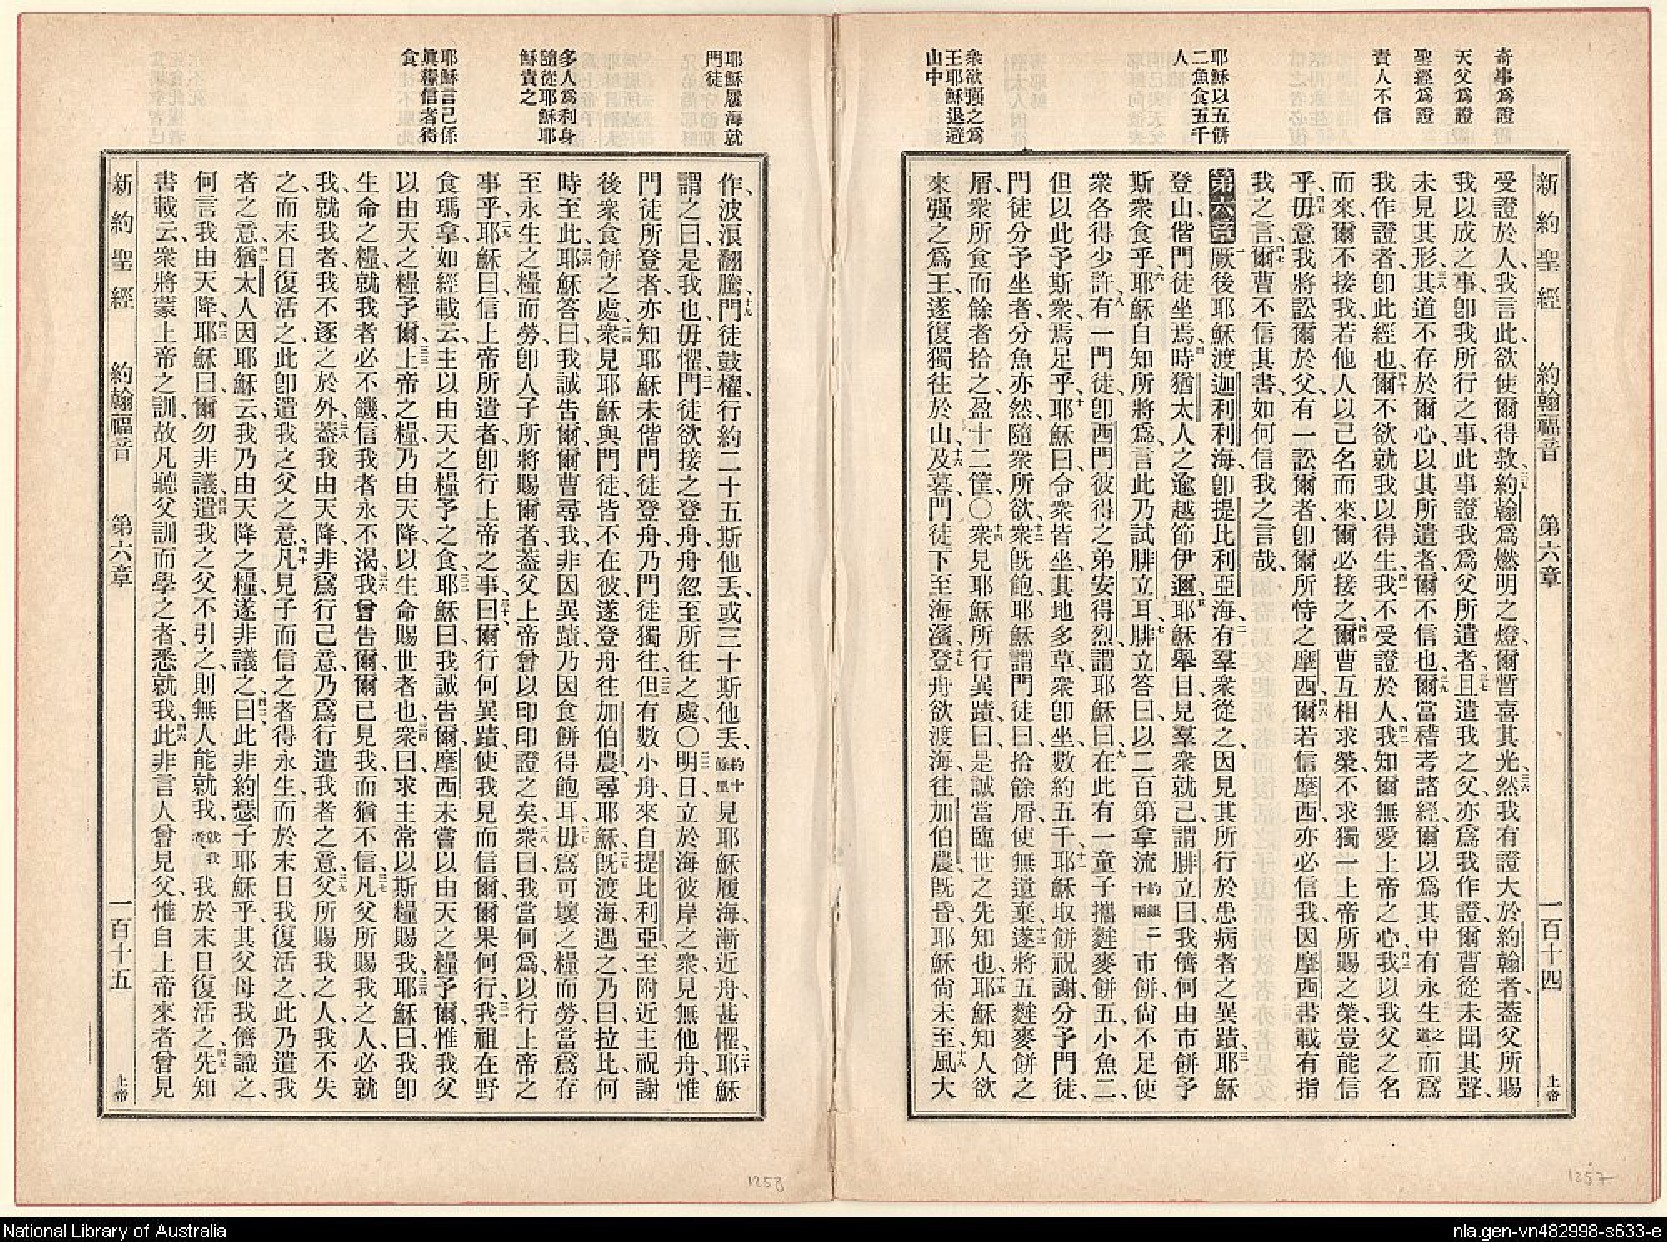 奇事爲證
天父爲證
聖經爲證
責人不信
耶穌以五餅
二魚食五千
人
衆欲强之爲
王耶穌退避
山中
新約聖經 約翰福音 第六章 一百十四 上帝
受證於人、我言此、欲使爾得救、三五約翰爲燃明之燈、爾暫喜其光、三六然我有證大於約翰者、蓋父所賜
我以成之事、卽我所行之事、此事證我爲父所遣者、三七且遣我之父、亦爲我作證、爾曹從未聞其聲、
未見其形、三八其道不存於爾心、以其所遣者、爾不信也、三九爾當稽考諸經、爾以爲其中有永生之道而爲
我作證者、卽此經也、四十爾不欲就我以得生、四一我不受證於人、四二我知爾無愛上帝之心、四三我以我父之名
而來、爾不接我、若他人以己名而來、爾必接之、四四爾曹互相求榮、不求獨一上帝所賜之榮、豈能信
乎、四五毋意我將訟爾於父、有一訟爾者、卽爾所恃之摩西、四六爾若信摩西、亦必信我、因摩西書載有指
我之言、四七爾曹不信其書、如何信我之言哉、
第六章 一厥後耶穌渡迦利利海、卽提比利亞海、二有羣衆從之、因見其所行於患病者之異蹟、三耶穌
登山、偕門徒坐焉、四時猶太人之逾越節伊邇、五耶穌舉目、見羣衆就己、謂腓立曰、我儕何由市餅、予
斯衆食乎、六耶穌自知所將爲、言此乃試腓立耳、七腓立答曰、以二百第拿流約銀二十兩市餅、尚不足使
衆各得少許、八有一門徒、卽西門彼得之弟安得烈、謂耶穌曰、九在此有一童子、攜麰麥餅五、小魚二、
但以此予斯衆、焉足乎、十耶穌曰、令衆皆坐、其地多草、衆卽坐、數約五千、十一耶穌取餅祝謝、分予門徒、
門徒分予坐者、分魚亦然、隨衆所欲、十二衆旣飽、耶穌謂門徒曰、拾餘屑、使無遺棄、十三遂將五麰麥餅之
屑、衆所食而餘者、拾之、盈十二筐、〇十四衆見耶穌所行異蹟、曰、是誠當臨世之先知也、十五耶穌知人欲
來强之爲王、遂復獨往於山、十六及暮、門徒下至海濱、十七登舟、欲渡海、往加伯農、旣昏、耶穌尚未至、十八風大
耶穌履海就
門徒
多人爲利身
請從耶穌耶
穌責之
耶穌言己係
眞糧信者得
食
作、波浪翻騰、十九門徒鼓櫂、行約二十五斯他丟、或三十斯他丟、約十餘里見耶穌履海、漸近舟、甚懼、二十耶穌
謂之曰、是我也、毋懼、二一門徒欲接之登舟、舟忽至所往之處、〇二二明日、立於海彼岸之衆、見無他舟、惟
門徒所登者、亦知耶穌未偕門徒登舟、乃門徒獨往、二三但有數小舟、來自提比利亞、至附近主祝謝
後、衆食餅之處、二四衆見耶穌與門徒、皆不在彼、遂登舟、往加伯農、尋耶穌、二五旣渡海、遇之、乃曰、拉比、何
時至此、二六耶穌答曰、我誠告爾、爾曹尋我、非因異蹟、乃因食餅得飽耳、二七毋爲可壞之糧而勞、當爲存
至永生之糧而勞、卽人子所將賜爾者、蓋父上帝曾以印印證之矣、二八衆曰、我當何爲、以行上帝之
事乎、二九耶穌曰、信上帝所遣者、卽行上帝之事、三十曰、爾行何異蹟、使我見而信爾、爾果何行、三一我祖在野
食瑪拿、如經載云、主以由天之糧予之食、三二耶穌曰、我誠告爾、摩西未嘗以由天之糧予爾、惟我父
以由天之糧予爾、三三上帝之糧、乃由天降、以生命賜世者也、三四衆曰、求主常以斯糧賜我、三五耶穌曰、我卽
生命之糧、就我者必不饑、信我者永不渴、三六我曾告爾、爾已見我、而猶不信、三七凡父所賜我之人、必就
我、就我者、我不逐之於外、三八蓋我由天降、非爲行己意、乃爲行遣我者之意、三九父所賜我之人、我不失
之、而末日復活之、此卽遣我之父之意、四十凡見子而信之者得永生、而於末日我復活之、此乃遣我
者之意、四一猶太人因耶穌云、我乃由天降之糧、遂非議之、四二曰、此非約瑟子耶穌乎、其父母我儕識之、
何言我由天降、四三耶穌曰、爾勿非議、四四遣我之父不引之、則無人能就我、就我者我於末日復活之、四五先知
書載云、衆將蒙上帝之訓、故凡聽父訓而學之者、悉就我、四六此非言人曾見父、惟自上帝來者曾見
新約聖經 約翰福音 第六章 一百十五 上帝
1258
1257
National Library of Australia
nla.gen-vn482998-s633-e